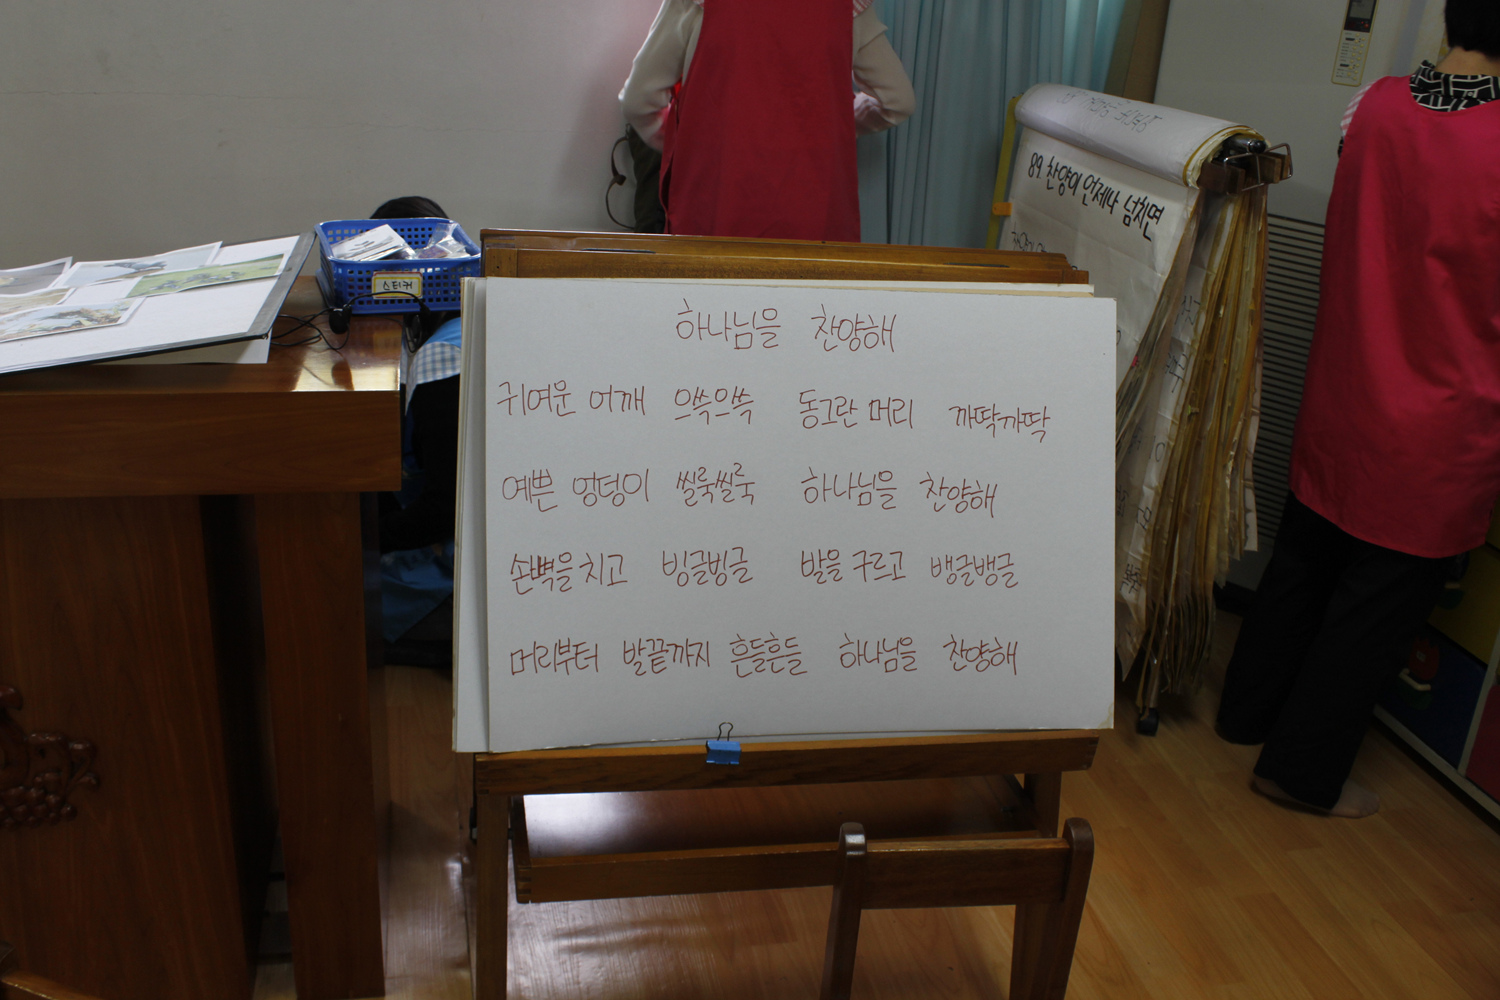 하나님을 찬양해
귀여운 어깨 으쓱으쓱 동그란 머리 까딱까딱
예쁜 엉덩이 씰룩씰룩 하나님을 찬양해
손뼉을 치고 빙글빙글 발을 구르고 뱅글뱅글
머리부터 발끝까지 흔들흔들 하나님을 찬양해
스티커
89 찬양이 언제나 넘치면